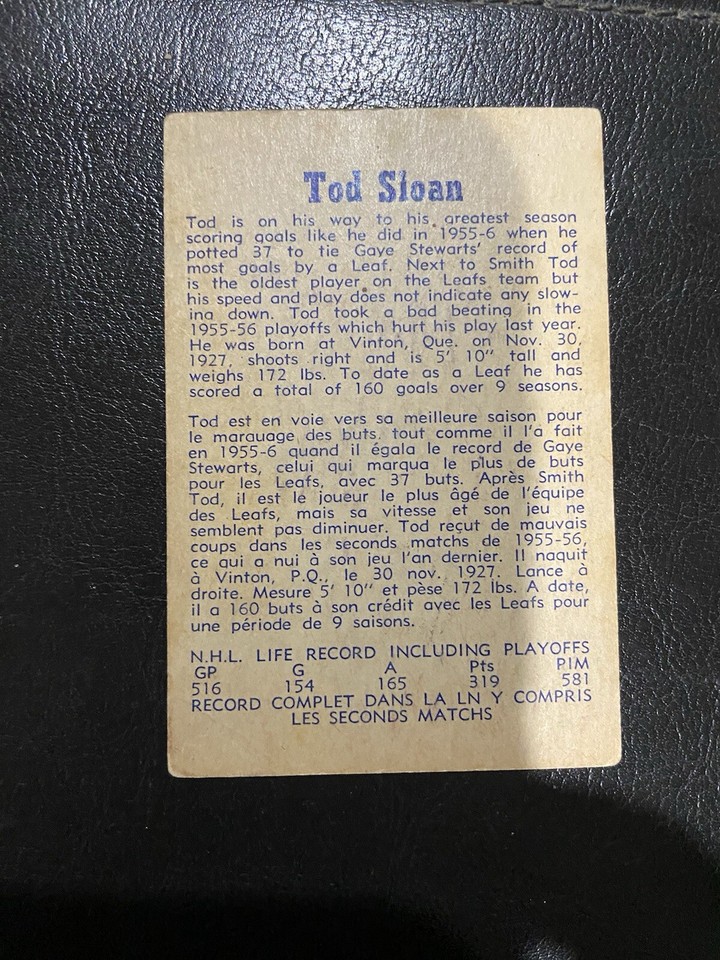 Tod Sloan
Tod is on his way to his greatest season
scoring goals like he did in 1955-6 when he
potted 37 to tie Gaye Stewarts' record of
most goals by a Leaf. Next to Smith Tod
is the oldest player on the Leafs team but
his speed and play does not indicate any slow-
ing down. Tod took a bad beating in the
1955-56 playoffs which hurt his play last year.
He was born at Vinton, Que. on Nov. 30,
1927, shoots right and is 5' 10" tall and
weighs 172 lbs. To date as a Leaf he has
scored a total of 160 goals over 9 seasons.
Tod est en voie vers sa meilleure saison pour
le marauage des buts. tout comme il l'a fait
en 1955-6 quand il égala le record de Gaye
Stewarts, celui qui marqua le plus de buts
pour les Leafs, avec 37 buts. Après Smith
Tod, il est le joueur le plus âgé de l'équipe
des Leafs, mais sa vitesse et son jeu ne
semblent pas diminuer. Tod reçut de mauvais
coups dans les seconds matchs de 1955-56,
ce qui a nui à son jeu l'an dernier. Il naquit
à Vinton, P.Q., le 30 nov. 1927. Lance à
droite. Mesure 5' 10" et pèse 172 lbs. A date,
il a 160 buts à son crédit avec les Leafs pour
une période de 9 saisons.
N.H.L. LIFE RECORD INCLUDING PLAYOFFS
GP G A Pts PIM
516 154 165 319 581
RECORD COMPLET DANS LA LN Y COMPRIS
LES SECONDS MATCHS